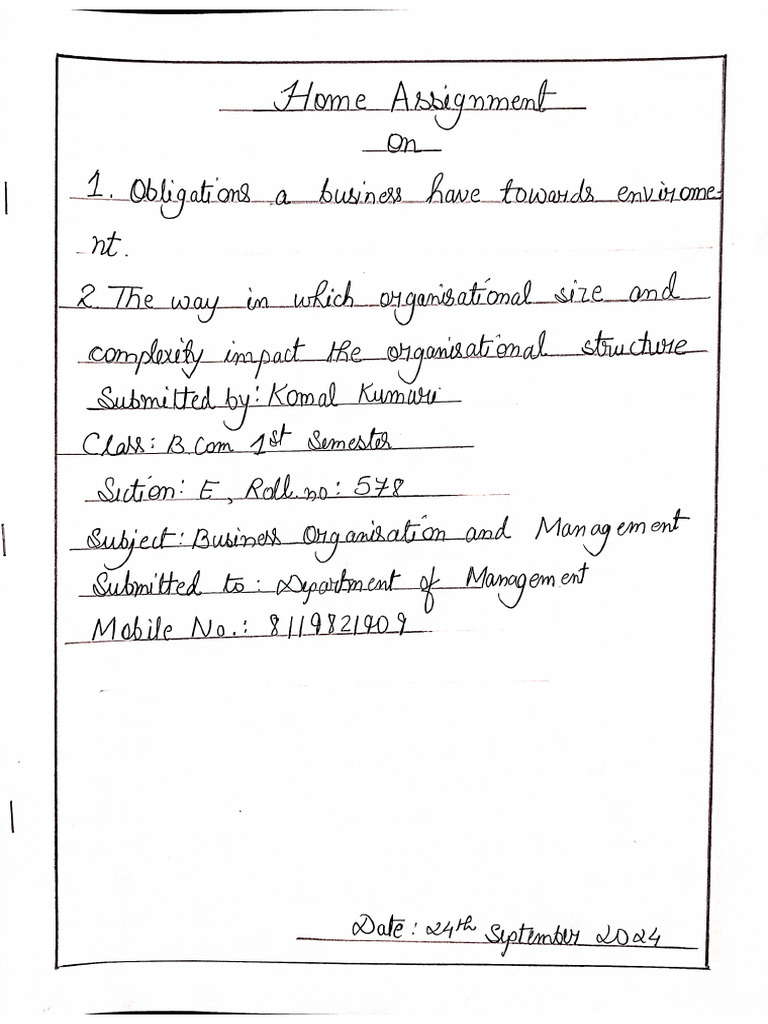 Home Assignment
On
1. Obligations a business have towards envirome-
nt.
2. The way in which organisational size and
complexity impact the organisational structure
Submitted by: Komal Kumari
Class: B.Com 1st Semester
Section: E, Roll no: 578
Subject: Business Organisation and Management
Submitted to: Department of Management
Mobile No.: 8119821909
Date: 24th September 2024